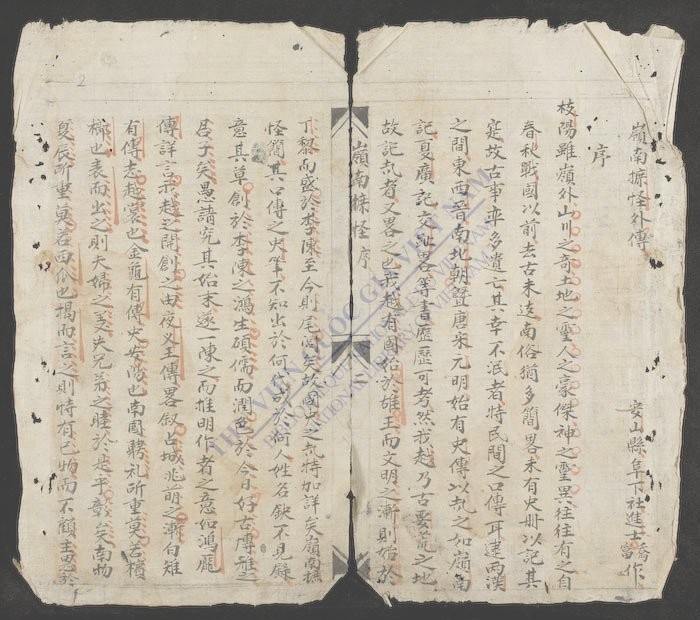 嶺南摭怪外傳
序
安山縣阜下社進士喬富作
桂陽雖嶺外山川之奇土地之灵人之豪傑神之灵異往往有之自
春秋戰國以前去古未遠南俗猶多簡畧未有史冊以記其
寔故古事率多遺亡其幸不泯者特民間之口傳耳逮兩漢
之間東西晋南北朝曁唐宋元明始有史傳以記之如嶺南
記夏廣記交趾畧等書歷歷可考然我越乃古要荒之地
故記載者又畧之也我越有國始於雄王而文明之漸則始於
嶺南摭怪序
丁黎而盛於李陳至今則尾閭矣故國史之記特加詳矣嶺南摭
怪簡其口傳之史筆不知出於何時於何人姓名欽不見録
意其草創於李陳之鴻生碩儒而潤色於今日好古博雅之
君子矣愚請究其始末遂一陳之而推明作者之意如鴻龐
傳詳言我越之開創之由夜义王傳畧叙占城兆萌之漸白雉
有傳志越裳也金龜有傳史安陽也南國聘礼所重莫若檳
榔也表而出之則夫婦之義夫兄弟之睦於是乎彰矣南物
夏辰所重莫若西瓜也揭而言之則恃有己物而不顧主恩於
2
THƯ VIỆN QUỐC GIA VIỆT NAM
BIBLIOTHÈQUE NATIONALE DU VIETNAM
NATIONAL LIBRARY OF VIETNAM